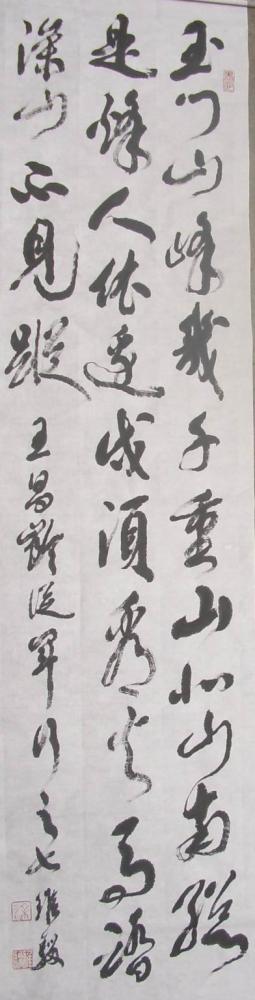 玉门山峰幾千重山北山南總
是烽人依遠戍須看火馬踏
深山不見蹤 王昌齡從軍行之七 維